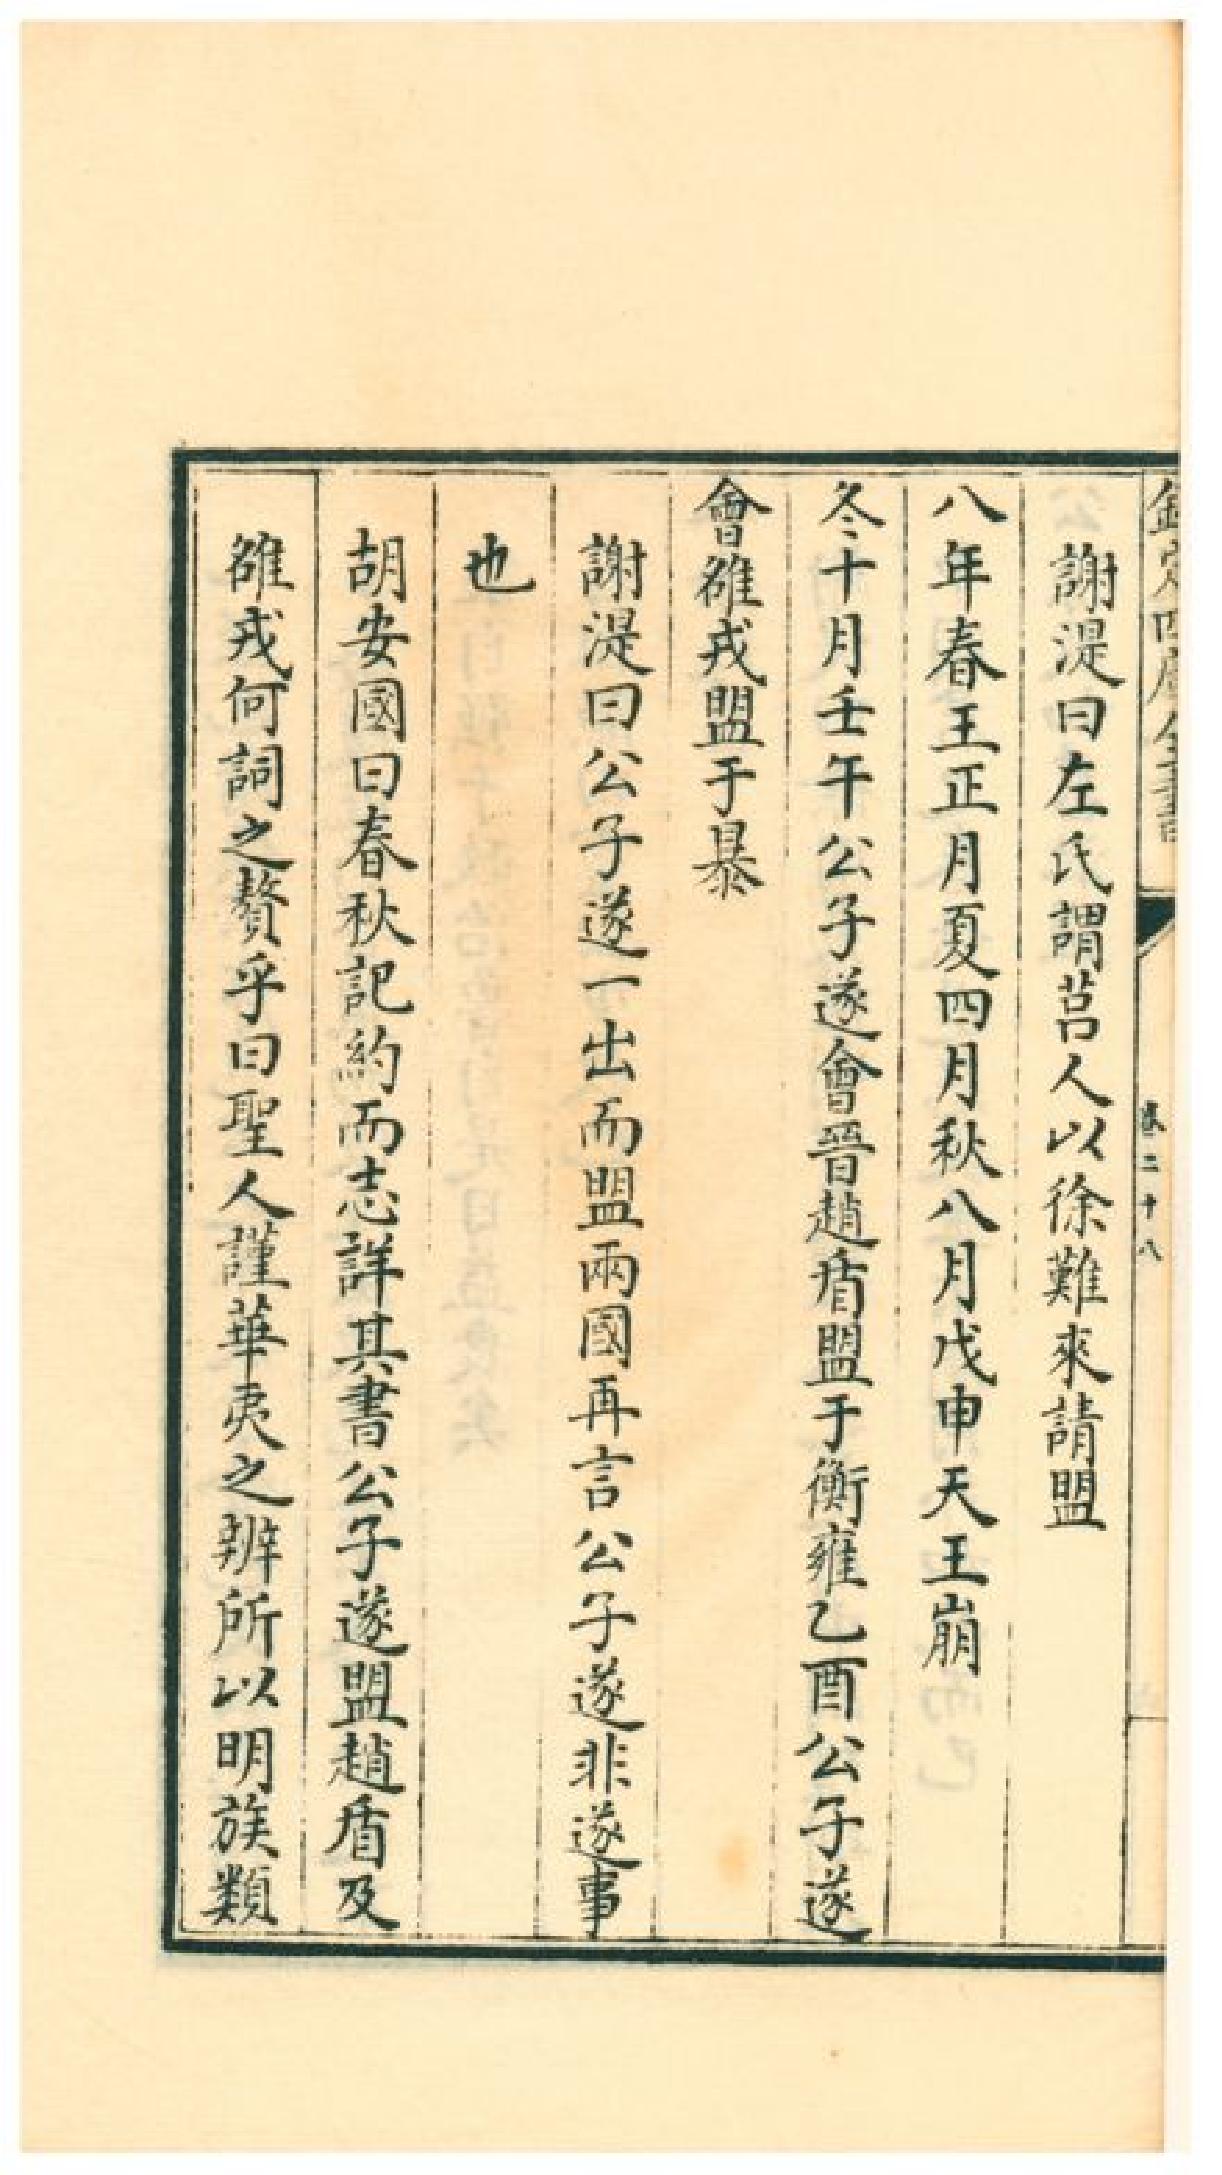 欽定四庫全書
卷二十八
謝湜曰左氏謂莒人以徐難來請盟
八年春王正月夏四月秋八月戊申天王崩
冬十月壬午公子遂會晉趙盾盟于衡雍乙酉公子遂
會雒戎盟于暴
謝湜曰公子遂一出而盟兩國再言公子遂非遂事
也
胡安國曰春秋記約而志詳其書公子遂盟趙盾及
雒戎何詞之贅乎曰聖人謹華夷之辨所以明族類